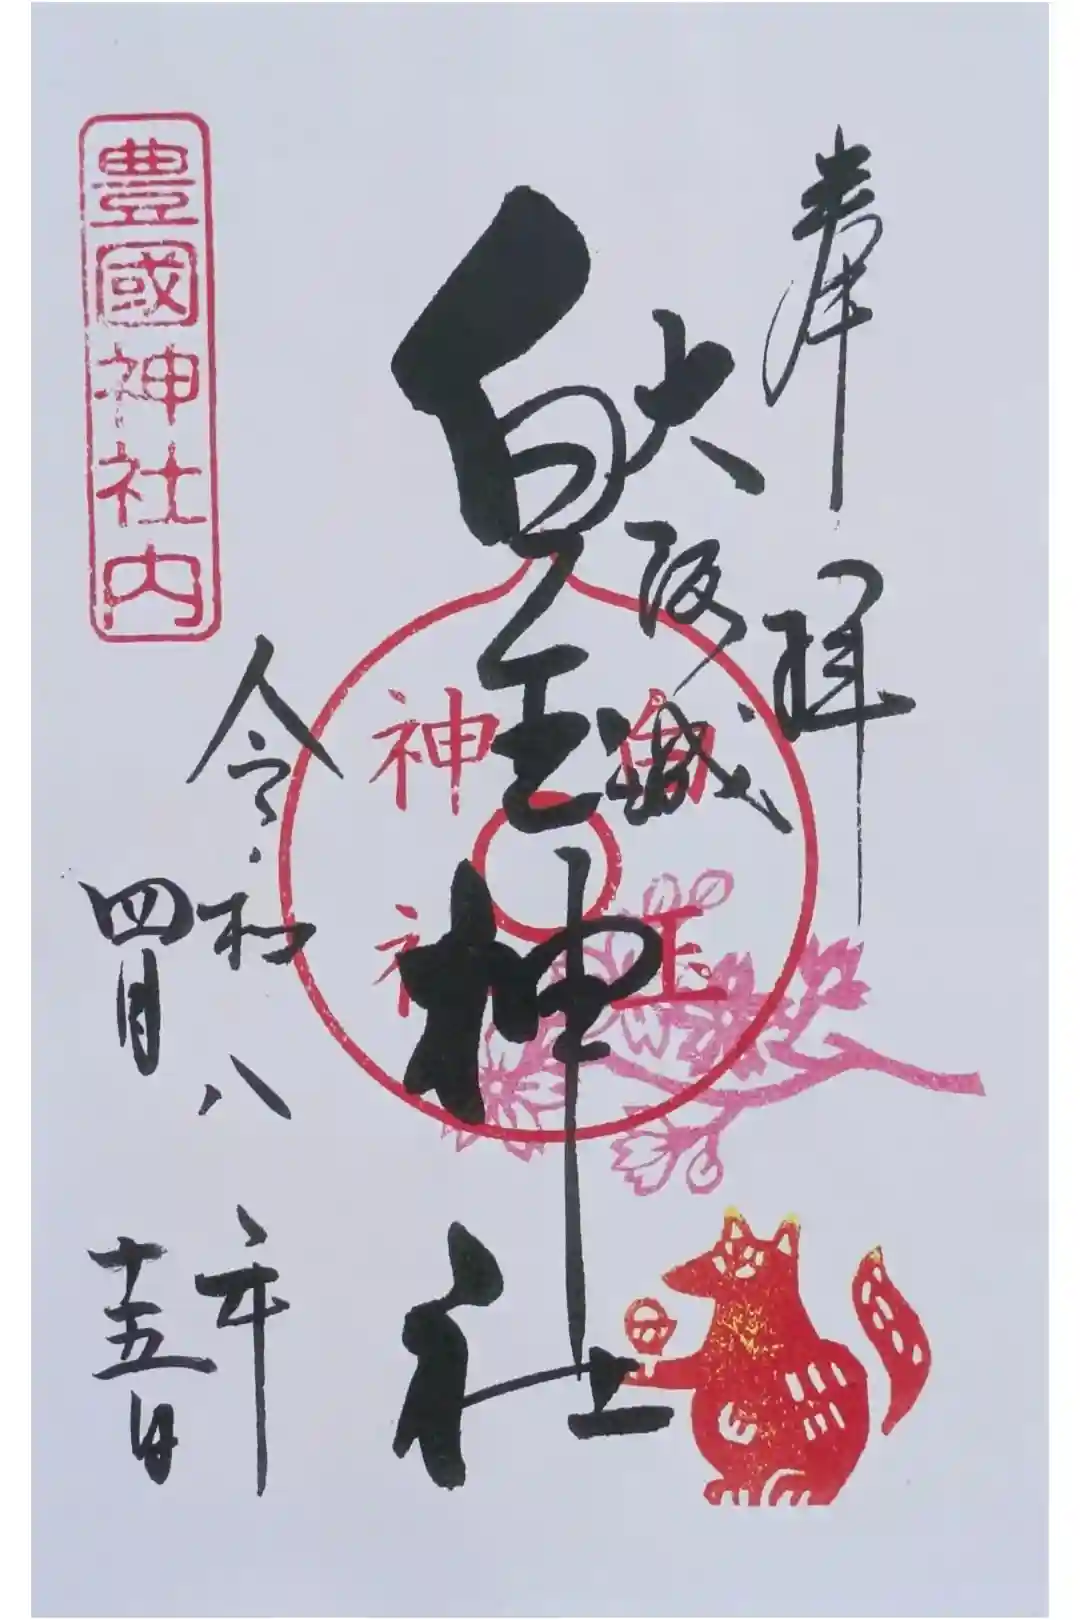 奉拝
大阪城
白玉神社
白玉
神社
令和八年
四月十五日
豊國神社内